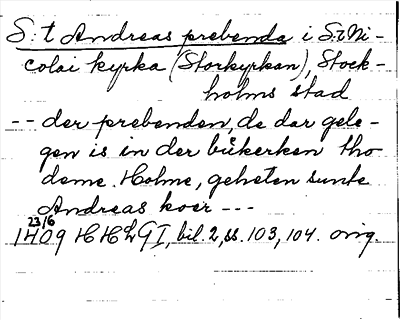 S:t Andreas prebende i S:t Ni-
colai kyrka (Storkyrkan), Stock-
holms stad
-- der prebenden, de dar gele-
gen is in der bükerken tho
deme Holme, geheten sunte
Andreas koer ---
23/6
1409 HHLGI, bil. 2, ss. 103, 104. orig.